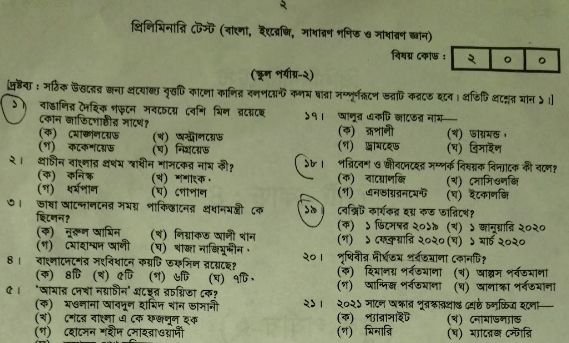 ২
প্রিলিমিনারি টেস্ট (বাংলা, ইংরেজি, সাধারণ গণিত ও সাধারণ জ্ঞান)
বিষয় কোড : ২ ০ ০
(স্কুল পর্যায়-২)
দ্রষ্টব্য : সঠিক উত্তরের জন্য প্রযোজ্য বৃত্তটি কালো কালির বলপয়েন্ট কলম দ্বারা সম্পূর্ণরূপে ভরাট করতে হবে। প্রতিটি প্রশ্নের মান ১।
১। বাঙালির দৈহিক গড়নে সবচেয়ে বেশি মিল রয়েছে
কোন জাতিগোষ্ঠীর সাথে?
(ক) মোঙ্গলয়েড (খ) অস্ট্রালয়েড
(গ) ককেশয়েড (ঘ) নিগ্রয়েড
২। প্রাচীন বাংলার প্রথম স্বাধীন শাসকের নাম কী?
(ক) কনিষ্ক (খ) শশাংক
(গ) ধর্মপাল (ঘ) গোপাল
৩। ভাষা আন্দোলনের সময় পাকিস্তানের প্রধানমন্ত্রী কে
ছিলেন?
(ক) নুরুল আমিন (খ) লিয়াকত আলী খান
(গ) মোহাম্মদ আলী (ঘ) খাজা নাজিমুদ্দীন
৪। বাংলাদেশের সংবিধানে কয়টি তফসিল রয়েছে?
(ক) ৪টি (খ) ৫টি (গ) ৬টি (ঘ) ৭টি
৫। 'আমার দেখা নয়াচীন' গ্রন্থের রচয়িতা কে?
(ক) মওলানা আবদুল হামিদ খান ভাসানী
(খ) শেরে বাংলা এ কে ফজলুল হক
(গ) হোসেন শহীদ সোহরাওয়ার্দী
১৭। আলুর একটি জাতের নাম—
(ক) রূপালী (খ) ডায়মন্ড
(গ) ড্রামহেড (ঘ) ব্রিসাইল
১৮। পরিবেশ ও জীবদেহের সম্পর্ক বিষয়ক বিদ্যাকে কী বলে?
(ক) বায়োলজি (খ) সোসিওলজি
(গ) এনভায়রনমেন্ট (ঘ) ইকোলজি
১৯। ব্রেক্সিট কার্যকর হয় কত তারিখে?
(ক) ১ ডিসেম্বর ২০১৯ (খ) ১ জানুয়ারি ২০২০
(গ) ১ ফেব্রুয়ারি ২০২০ (ঘ) ১ মার্চ ২০২০
২০। পৃথিবীর দীর্ঘতম পর্বতমালা কোনটি?
(ক) হিমালয় পর্বতমালা (খ) আল্পস পর্বতমালা
(গ) আন্দিজ পর্বতমালা (ঘ) আলাস্কা পর্বতমালা
২১। ২০২১ সালে অস্কার পুরস্কারপ্রাপ্ত শ্রেষ্ঠ চলচ্চিত্র হলো—
(ক) প্যারাসাইট (খ) নোমাডল্যান্ড
(গ) মিনারি (ঘ) ম্যারেজ স্টোরি